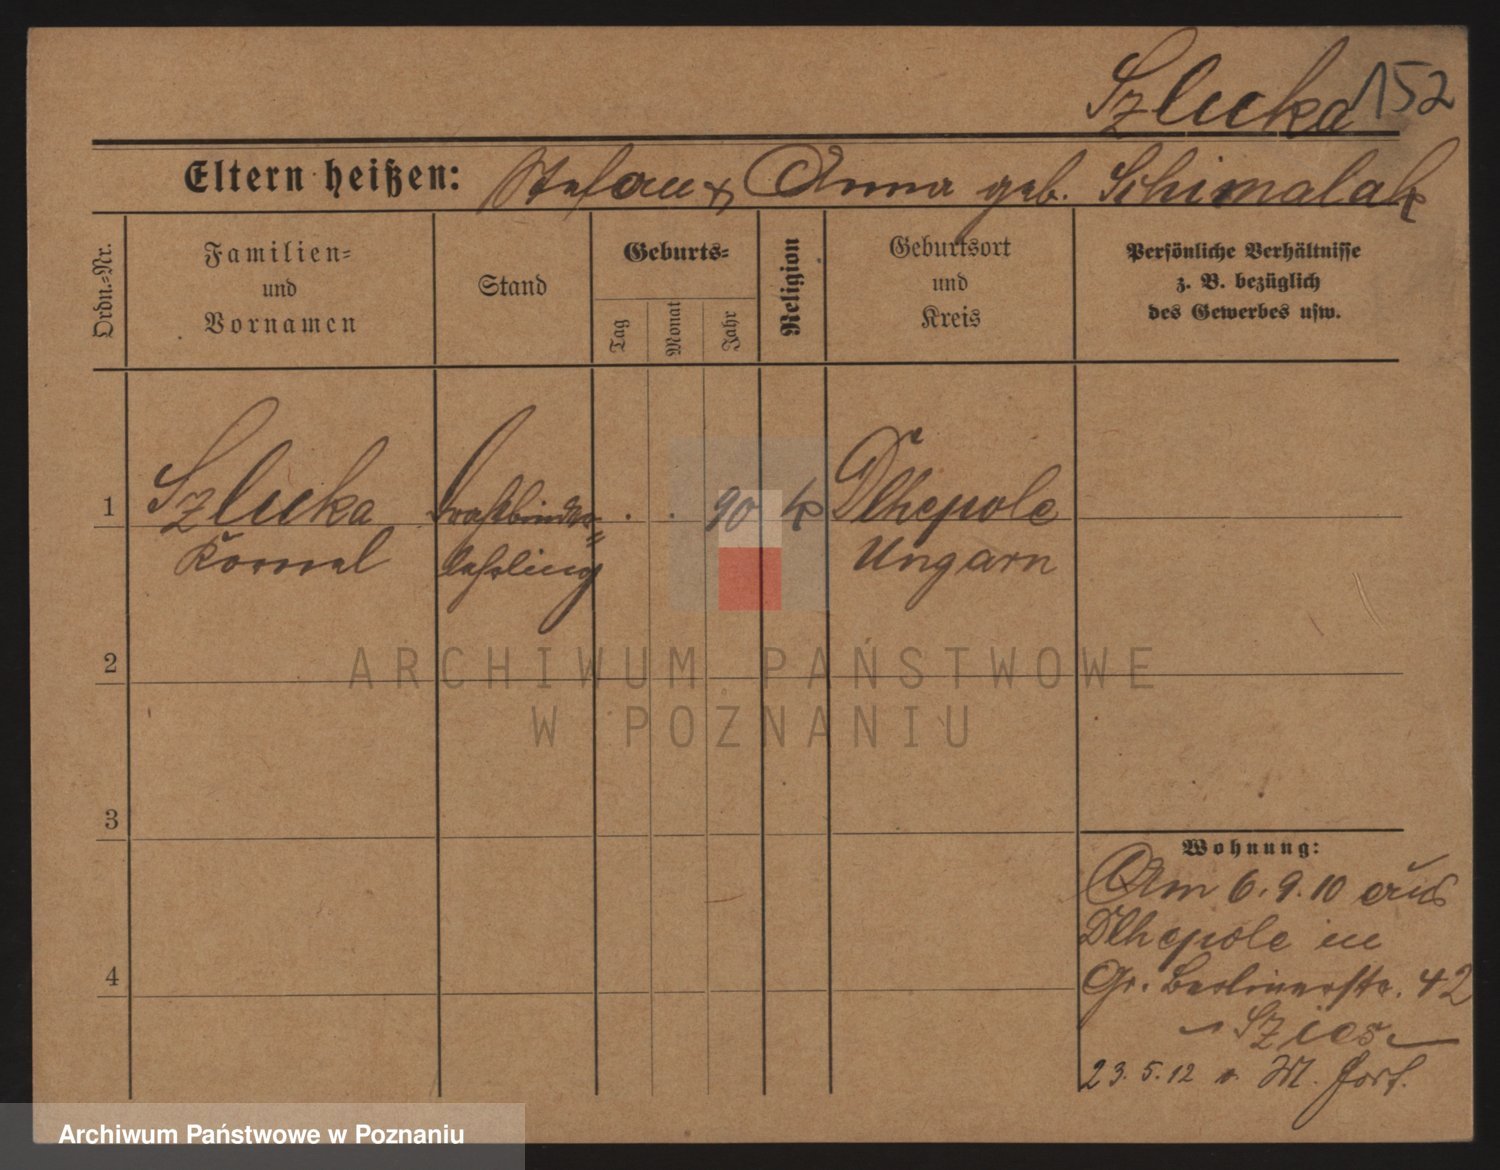 Szluka 152
Eltern heißen: Stefan & Anna geb. Schimalak
Ordn.-Nr.
Familien-
und
Vornamen
Stand
Geburts-
Tag
Monat
Jahr
Religion
Geburtsort
und
Kreis
Persönliche Verhältnisse
z. B. bezüglich
des Gewerbes usw.
1 Szluka Drahtbinder= . . 90 k Dlhepole
Kornel lehrling Ungarn
2
ARCHIWUM PAŃSTWOWE
W POZNANIU
3
Wohnung:
Am 6.9.10 aus
Dlhepole in
4
Gr. Berlinerstr. 42
23.5.12 v. M. fort.
Archiwum Państwowe w Poznaniu